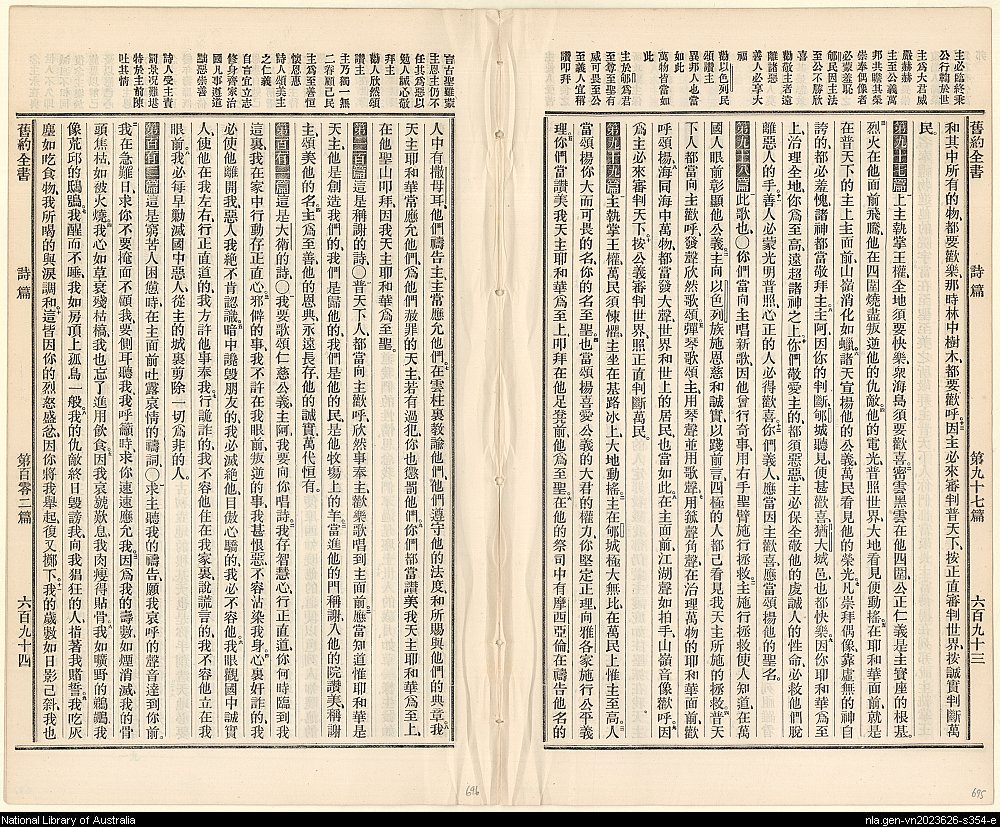 主必臨終乘
公行翰於世
主爲大君威
嚴赫赫
主至公義萬
邦共瞻其榮
崇奉偶像者
必蒙羞恥
郇民因主法
至公不勝欣
喜
勸敬主者遠
離諸惡
善人必享大
福
勸以色列民
頌讚主
異邦人也當
如此
萬物皆當如
此
主於郇爲君
至尊至聖有
威可畏至公
至義人宜稱
讚叩拜
舊約全書
詩篇
第九十七篇
六百九十三
和其中所有的物都要歡樂那時林中樹木都要歡呼因主必來審判普天下按正直審判世界按誠實判斷萬
民。
第九十七篇 上主執掌王權全地須要快樂衆海島須要歡喜密雲黑雲在他四圍公正仁義是主寶座的根基
烈火在他面前飛騰他在四圍燒盡叛逆他的仇敵他的電光普照世界大地看見便動搖在耶和華面前就是
在普天下的主上主面前山嶺消化如蠟諸天宣揚他的公義萬民看見他的榮光凡崇拜偶像靠虛無的神自
誇的都必羞愧諸神都當敬拜主主阿因你的判斷郇城聽見便甚歡喜猶大城邑也都快樂因你耶和華爲至
上治理全地你爲至高遠超諸神之上你們敬愛主的都須惡惡主必保全敬他的虔誠人的性命必救他們脫
離惡人的手善人必蒙光明普照心正的人必得歡喜你們義人應當因主歡喜應當頌揚他的聖名。
第九十八篇 此歌也〇你們當向主唱新歌因他曾行奇事用右手聖臂施行拯救主施行拯救使人知道在萬
國人眼前彰顯他公義主向以色列族施恩慈和誠實以踐前言四極的人都己看見我天主所施的拯救普天
下人都當向主歡呼發聲欣然歌頌彈琴歌頌主用琴聲並用歌聲用鼓聲角聲在治理萬物的耶和華面前
呼頌揚海同海中萬物都當發大聲世界和世上的居民也當如此在主面前江湖聲如拍手山嶺音像歡呼因
爲主必來審判天下按公義審判世界照正直判斷萬民。
第九十九篇 主執掌王權萬民須悚懼主坐在基路冰上大地動搖主在郇城極大無比在萬民上惟主至高人
當頌揚你大而可畏的名你的名至聖也當頌揚喜愛公義的大君的權力你堅定正理向雅各家施行公平義
理你們當讚美我天主耶和華爲至上叩拜在他足凳前他爲至聖在他的祭司中有摩西亞倫在禱告他名的
695
官作聖雖蒙
主恩主仍不
任其惡以
勉人誠心敬
拜主
勸人欣然頌
讚主
主乃獨一無
二眷顧己民
主爲至善恒
懷恩惠
詩人頌美主
之仁義
自言宜立志
修身齊家治
國凡事遵道
詘惡崇善
詩人受主責
罰景況難堪
特於主前陳
吐其情
人中有撒母耳他們禱告主主常應允他們在雲柱裏教諭他們他們遵守他的法度和所賜與他們的典章我
天主耶和華當應允他們爲他們赦罪的天主若有過犯你也懲罰他們你們都當讚美我天主耶和華爲至上
在他聖山叩拜因我天主耶和華爲至聖。
第一百篇 這是稱謝的詩〇普天下人都當向主歡呼欣然事奉主歡樂歌唱到主面前應當知道惟耶和華是
天主他是創造我們的我們是歸他的我們是他的民是他牧場上的羊當進他的門稱謝入他的院讚美稱謝
主頌美他的名主爲至善他的恩典永遠長存他的誠實萬代恒有。
第百有一篇 這是大衛的詩〇我要歌頌仁慈公義主阿我要向你唱詩我存智慧心行正直道你何時臨到我
這裏我在家中行動存正直心邪僻的事我不許在我眼前叛逆的事我甚恨惡不容沾染我身心裏奸詐的我
必使他離開我惡人我絕不肯認識暗中讒毀朋友的我必滅絕他目傲心驕的我必不容他我眼觀國中誠實
人使他在我左右行正直道的我方許他事奉我行詭詐的我不容他住在我家裏說謊言的我不容他立在我
眼前我必每早勦滅國中惡人從主的城裏剪除一切爲非的人。
第百有二篇 這是窮苦人困憊時在主面前吐露哀情的禱詞〇求主聽我的禱告願我哀呼的聲音達到你前
我在急難日求你不要掩面不顧我要側耳聽我我呼籲時求你速速應允我因爲我的壽數如煙消滅我的骨
頭焦枯如被火燒我心如草衰殘枯槁我也忘了進用飲食因我哀號歎息我肉瘦得貼骨我如曠野的鵜鶘我
像荒邱的鴟鴞我醒而不睡我如房頂上孤鳥一般我的仇敵終日毀謗我向我猖狂的人指著我賭誓我吃灰
塵如吃食物我所喝的與淚調和這皆因你的烈怒盛忿因你將我舉起復又擲下我的歲數如日影己斜我也
舊約全書
詩篇
第百零二篇
六百九十四
696
National Library of Australia
nla.gen-vn2023626-s354-e